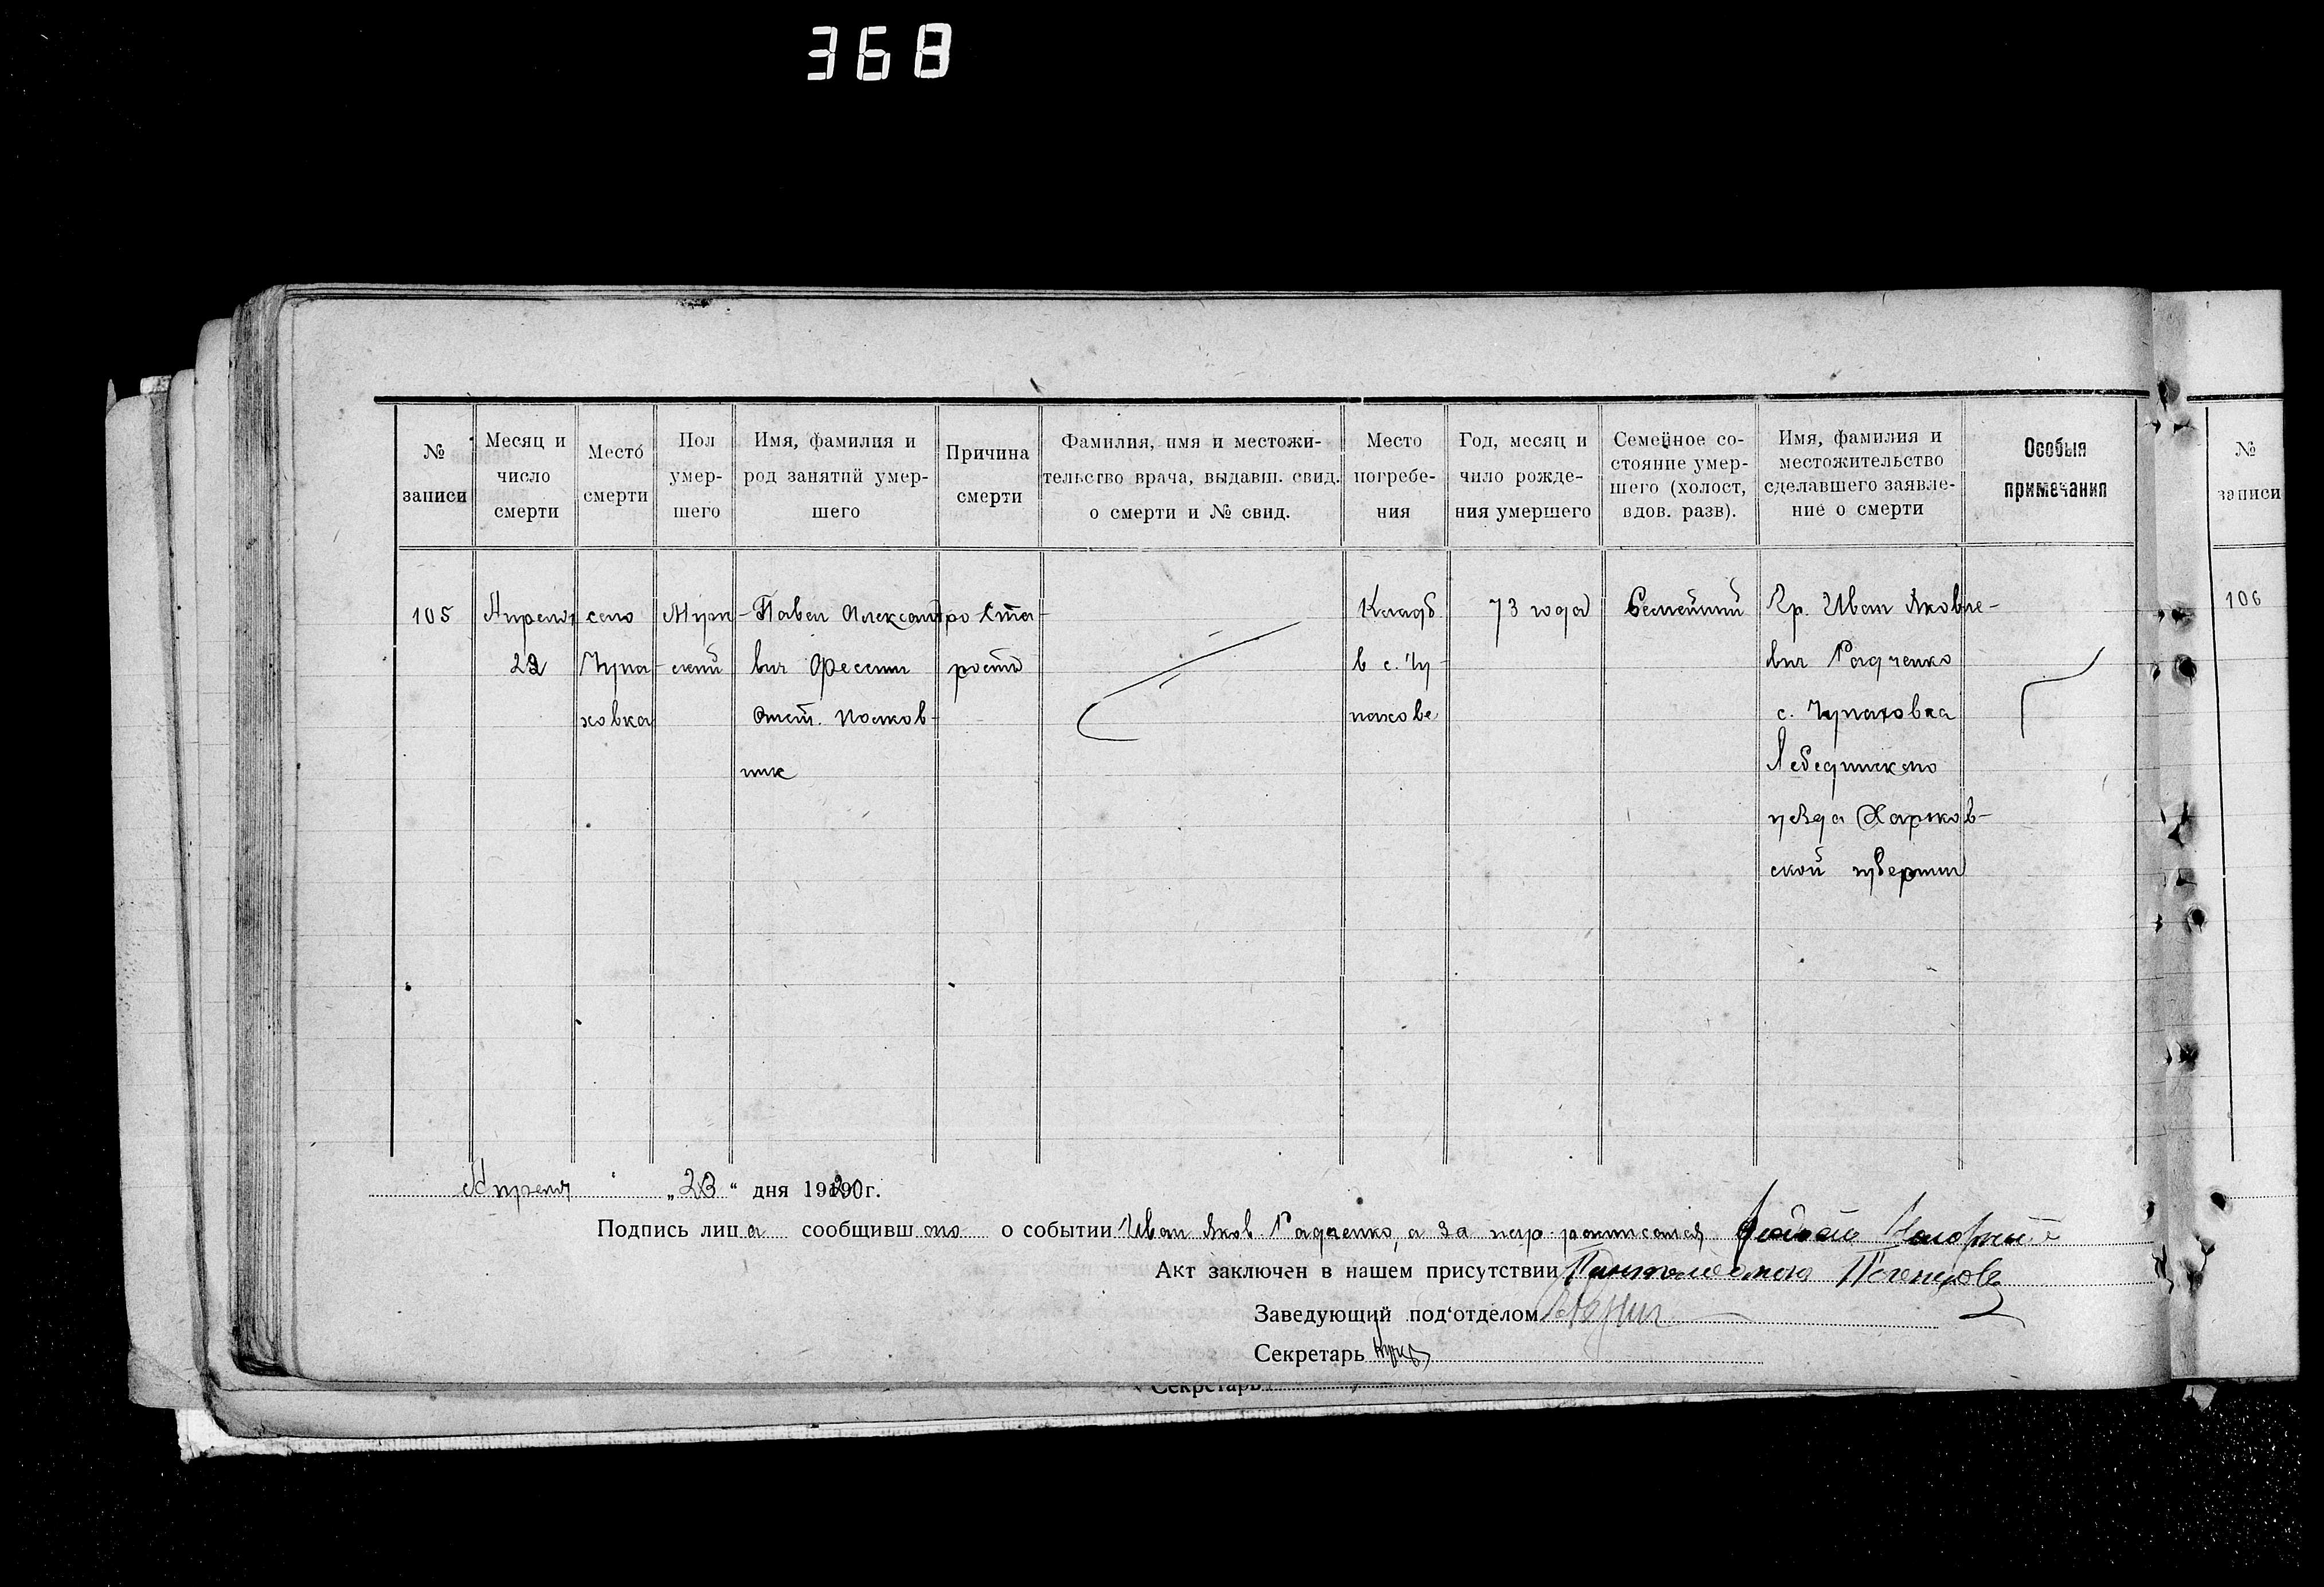 368
№ записи
Месяц и число смерти
Место смерти
Пол умер-шего
Имя, фамилия и род занятий умер-шего
Причина смерти
Фамилия, имя и местожи-тельство врача, выдавш. свид. о смерти и № свид.
Место погребе-ния
Год, месяц и чило рожде-ния умершего
Семейное со-стояние умер-шего (холост, вдов. разв).
Имя, фамилия и местожительство сделавшего заявле-ние о смерти
Особыя примечания
№ записи
105
Апреля
22
село
Чупа-
ховка
Муж-
ской
Павел Александро-
вич Фессин
Отст. полков-
ник
Ста-
рость
Кладб.
в с. Чу-
пахове
73 года
Семейный
Гр. Иван Яковле-
вич Радченко
с. Чупаховка
Лебединского
уезда Харьков-
ской губернии
106
Апреля „23“ дня 1920г.
Подпись лица сообщившаго о событии Иван Яков. Радченко, а за негр. росписался
Акт заключен в нашем присутствии
Заведующий под'отделом
Секретарь
Секретарь